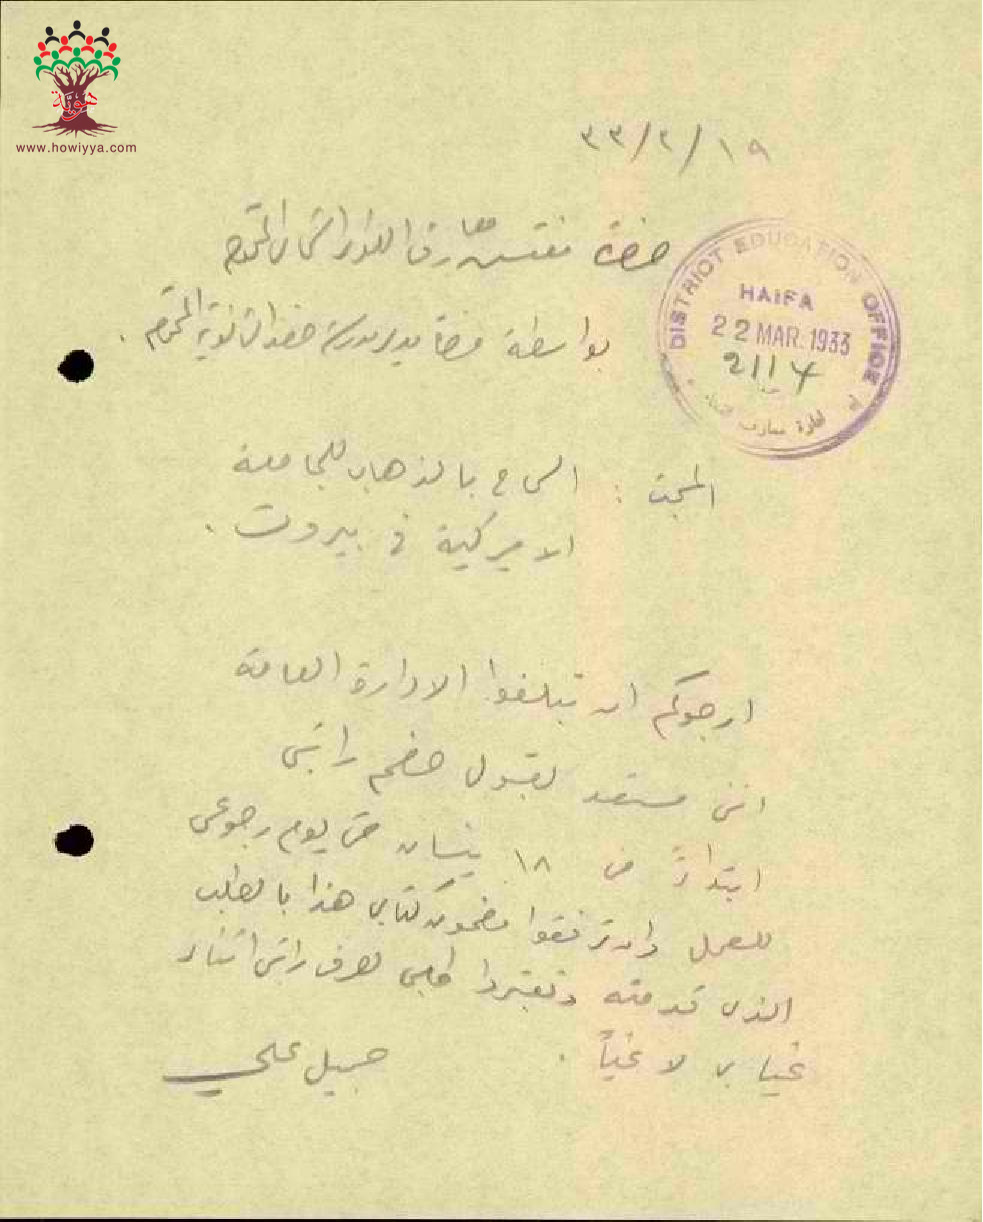 هوية
www.howiyya.com
١٩/٢/٣٣
حضرة مفتش معارف اللواء الشمالي المحترم
بواسطة حضرة مدير مدرسة صفد الثانوية المحترم .
DISTRICT EDUCATION OFFICE
HAIFA
22 MAR. 1933
2114
ادارة معارف
المبحث : السماح بالذهاب للجامعة
الاميركية في بيروت .
ارجوكم ان تبلغوا الادارة العامة
انني مستعد لقبول خصم راتبي
ابتداءً من ١٨ نيسان حتى يوم رجوعي
للعمل وان ترفقوا مضمون كتابي هذا بالطلب
الذي قدمته وتعتبروا طلبي لصرف راتبي اثناء
غيابي لاغياً .
جميل علي